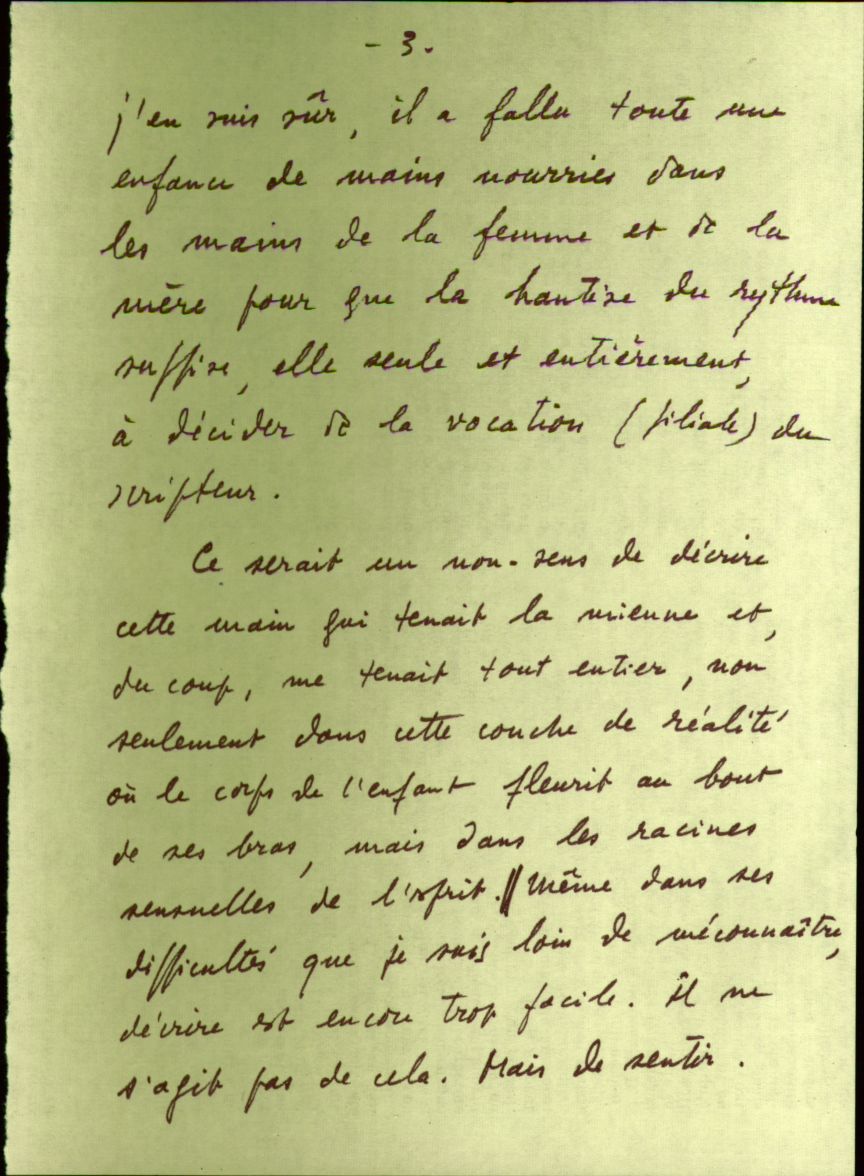 - 3.
j'en suis sûr, il a fallu toute une
enfance de mains nourries dans
les mains de la femme et de la
mère pour que la hantise du rythme
suffise, elle seule et entièrement,
à décider de la vocation (filiale) du
scripteur.
Ce serait un non-sens de décrire
cette main qui tenait la mienne et,
du coup, me tenait tout entier, non
seulement dans cette couche de réalité
où le corps de l'enfant fleurit au bout
de ses bras, mais dans les racines
sensuelles de l'esprit.|| Même dans ses
difficultés que je suis loin de méconnaître,
décrire est encore trop facile. Il ne
s'agit pas de cela. Mais de sentir.